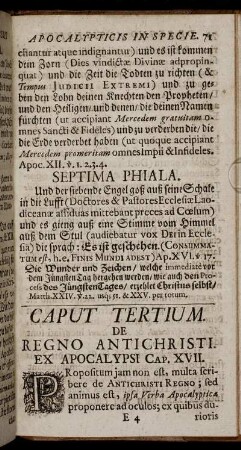 APOCALYPTICIS IN SPECIE. 71
ctiantur atque indignantur) und es ist kommen
dein Zorn (Dies vindictæ Divinæ adpropin-
quat) und die Zeit die Todten zu richten (&
Tempus JUDICII EXTREMI) und zu ge-
ben den Lohn deinen Knechten den Propheten/
und den Heiligen/ und denen/ die deinen Namen
fürchten (ut accipiant Mercedem gratuitam o-
mnes Sancti & Fideles) und zu verderben die/ die
die Erde verderbet haben (ut quoque accipiant
Mercedem promeritam omnes Impii & Infideles.
Apoc. XII. v. 1. 2. 3. 4.
SEPTIMA PHIALA.
Und der siebende Engel goß auß seine Schale
in die Lufft (Doctores & Pastores Ecclesiæ Lao-
diceanæ assiduas mittebant preces ad Cœlum)
und es gieng auß eine Stimme vom Himmel
auß dem Stul (audiebatur vox DEI in Eccle-
sia) die sprach: Es ist geschehen. (CONSUMMA-
TUM est. h. e. FINIS MUNDI ADEST) Ap. XVI. v. 17.
Die Wunder und Zeichen/ welche immediatè vor
dem Jüngsten Tag hergehen werden/ wie auch den Pro-
cess des Jüngsten Tages/ erzehlet Christus selbst/
Matth. XXIV. v. 22. usq; 51. & XXV. per totum.
CAPUT TERTIUM.
DE
REGNO ANTICHRISTI.
EX APOCALYPSI CAP. XVII.
PRopositum jam non est, multa scri-
bere de ANTICHRISTI REGNO; sed
animus est, ipsa Verba Apocalyptica
proponere ad oculos; ex quibus du-
E 4 riotis